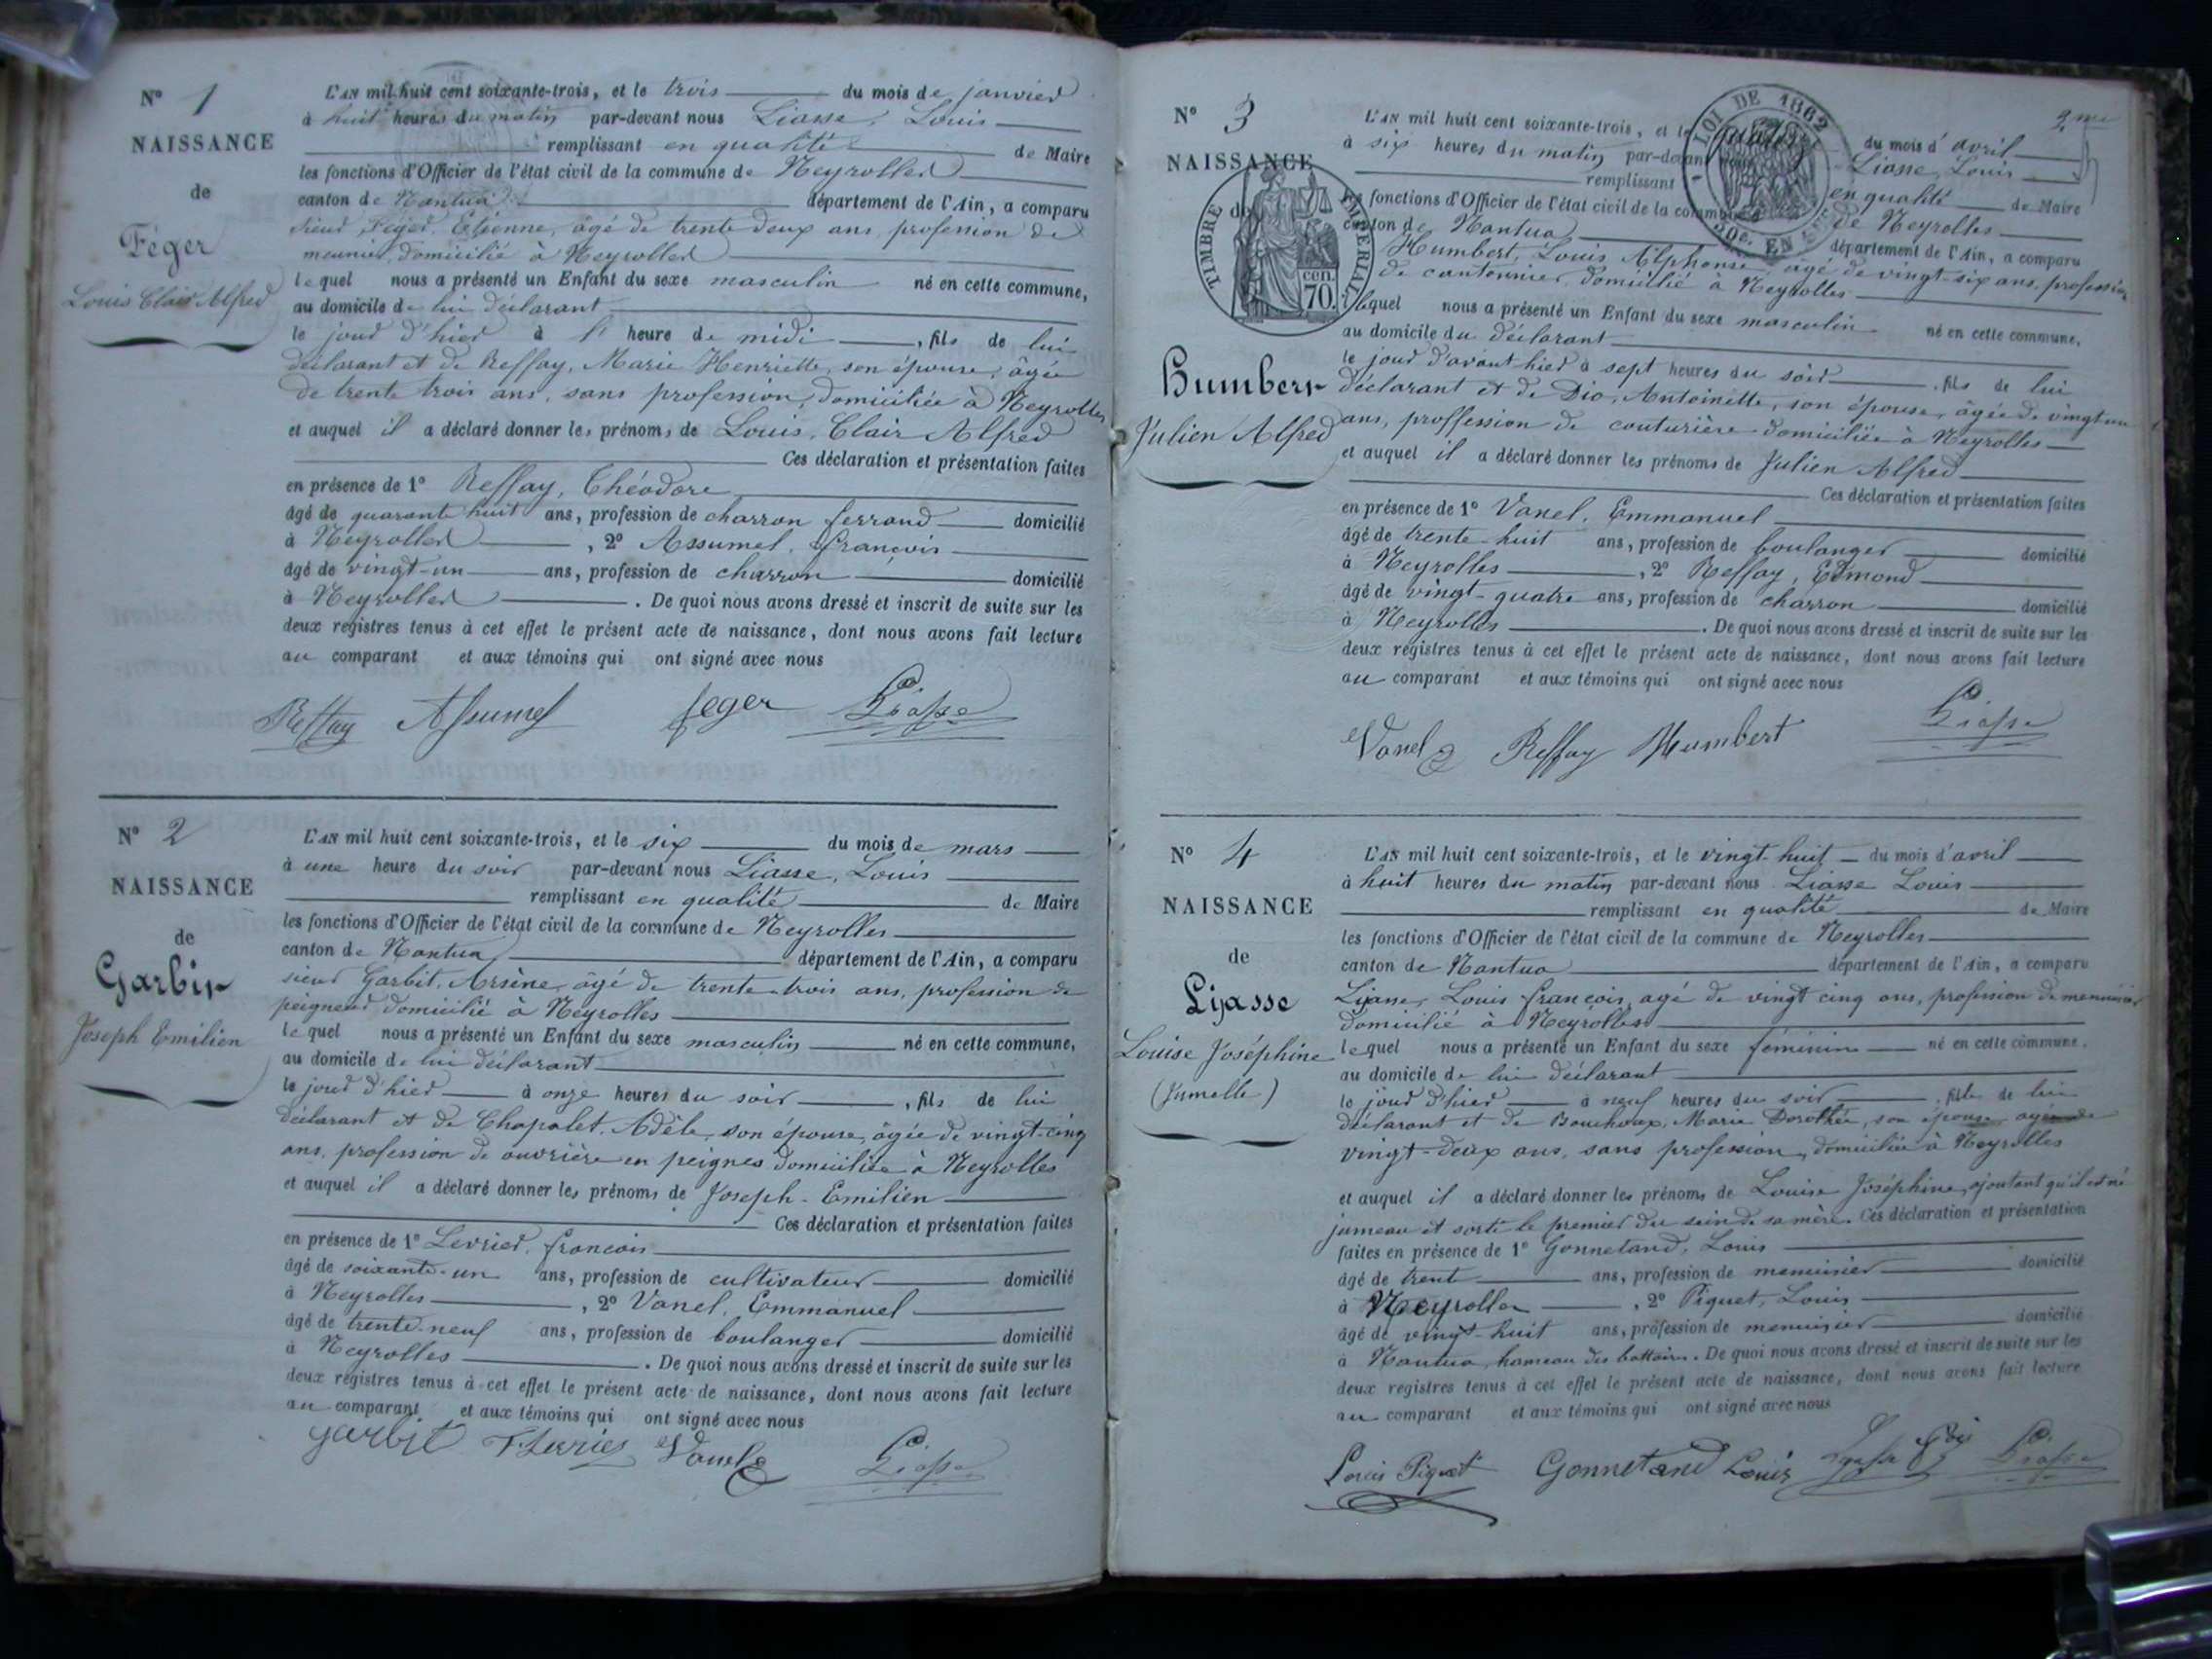 N° 1
NAISSANCE
de
Féger
Louis Clair Alfred
L'AN mil huit cent soixante-trois, et le trois du mois de janvier
à huit heures du matin par-devant nous Liasse, Louis
remplissant en qualité de Maire
les fonctions d'Officier de l'état civil de la commune de Neyrolles
canton de Nantua département de l'Ain, a comparu
sieur Féger, Etienne, âgé de trente deux ans, profession de
meunier, domicilié à Neyrolles
lequel nous a présenté un Enfant du sexe masculin né en cette commune,
au domicile de lui déclarant
le jour d'hier à l' heure de midi, fils de lui
déclarant et de Reffay, Marie Henriette, son épouse, âgée
de trente trois ans, sans profession, domiciliée à Neyrolles
et auquel il a déclaré donner les prénoms de Louis, Clair Alfred
Ces déclaration et présentation faites
en présence de 1° Reffay, Théodore
âgé de quarante huit ans, profession de charron ferrand domicilié
à Neyrolles, 2° Assumel, françois
âgé de vingt-un ans, profession de charron domicilié
à Neyrolles. De quoi nous avons dressé et inscrit de suite sur les
deux registres tenus à cet effet le présent acte de naissance, dont nous avons fait lecture
au comparant et aux témoins qui ont signé avec nous
Reffay Assumel feger Liasse
N° 2
NAISSANCE
de
Garbit
Joseph Emilien
L'AN mil huit cent soixante-trois, et le six du mois de mars
à une heure du soir par-devant nous Liasse, Louis
remplissant en qualité de Maire
les fonctions d'Officier de l'état civil de la commune de Neyrolles
canton de Nantua département de l'Ain, a comparu
sieur Garbit, Arsène, âgé de trente-trois ans, profession de
peigneur domicilié à Neyrolles
lequel nous a présenté un Enfant du sexe masculin né en cette commune,
au domicile de lui déclarant
le jour d'hier à onze heures du soir, fils de lui
déclarant et de Chapalet, Adèle, son épouse, âgée de vingt-cinq
ans, profession de ouvrière en peignes domiciliée à Neyrolles
et auquel il a déclaré donner les prénoms de Joseph-Emilien
Ces déclaration et présentation faites
en présence de 1° Levrier, françois
âgé de soixante-un ans, profession de cultivateur domicilié
à Neyrolles, 2° Vanel, Emmanuel
âgé de trente-neuf ans, profession de boulanger domicilié
à Neyrolles. De quoi nous avons dressé et inscrit de suite sur les
deux registres tenus à cet effet le présent acte de naissance, dont nous avons fait lecture
au comparant et aux témoins qui ont signé avec nous
garbit Vanel Liasse
2me
N° 3
NAISSANCE
de
Humbert
Julien Alfred
TIMBRE IMPERIAL
70 cen.
LOI DE 1862
L'AN mil huit cent soixante-trois, et le quatre du mois d'avril
à six heures du matin par-devant nous Liasse, Louis
remplissant en qualité de Maire
les fonctions d'Officier de l'état civil de la commune de Neyrolles
canton de Nantua département de l'Ain, a comparu
Humbert, Louis Alphonse, âgé de vingt-six ans, profession
de cantonnier, domicilié à Neyrolles
lequel nous a présenté un Enfant du sexe masculin né en cette commune,
au domicile du déclarant
le jour d'avant hier à sept heures du soir, fils de lui
déclarant et de Dio, Antoinette, son épouse, âgée de vingt un
ans, proffession de couturière domiciliée à Neyrolles
et auquel il a déclaré donner les prénoms de Julien Alfred
Ces déclaration et présentation faites
en présence de 1° Vanel, Emmanuel
âgé de trente-huit ans, profession de boulanger domicilié
à Neyrolles, 2° Reffay, Edmond
âgé de vingt-quatre ans, profession de charron domicilié
à Neyrolles. De quoi nous avons dressé et inscrit de suite sur les
deux registres tenus à cet effet le présent acte de naissance, dont nous avons fait lecture
au comparant et aux témoins qui ont signé avec nous
Vanel Reffay Humbert Liasse
N° 4
NAISSANCE
de
Liasse
Louise Joséphine
(Jumelle)
L'AN mil huit cent soixante-trois, et le vingt-huit du mois d'avril
à huit heures du matin par-devant nous Liasse Louis
remplissant en qualité de Maire
les fonctions d'Officier de l'état civil de la commune de Neyrolles
canton de Nantua département de l'Ain, a comparu
Liasse, Louis françois, agé de vingt cinq ans, profession de menuisier
domicilié à Neyrolles
lequel nous a présenté un Enfant du sexe féminin né en cette commune,
au domicile de lui déclarant
le jour d'hier à neuf heures du soir, fille de lui
déclarant et de Bouchoux, Marie Dorothée, son épouse agée de
vingt-deux ans, sans profession, domiciliée à Neyrolles
et auquel il a déclaré donner les prénoms de Louise Joséphine, ajoutant qu'il est né
jumeau et sorti le premier du sein de sa mère. Ces déclaration et présentation
faites en présence de 1° Gonnetand, Louis
âgé de trente ans, profession de menuisier domicilié
à Neyrolles, 2° Piquet, Louis
âgé de vingt-huit ans, profession de menuisier domicilié
à Nantua, hameau des battoirs. De quoi nous avons dressé et inscrit de suite sur les
deux registres tenus à cet effet le présent acte de naissance, dont nous avons fait lecture
au comparant et aux témoins qui ont signé avec nous
Louis Piquet Gonnetand Louis Liasse fçois Liasse